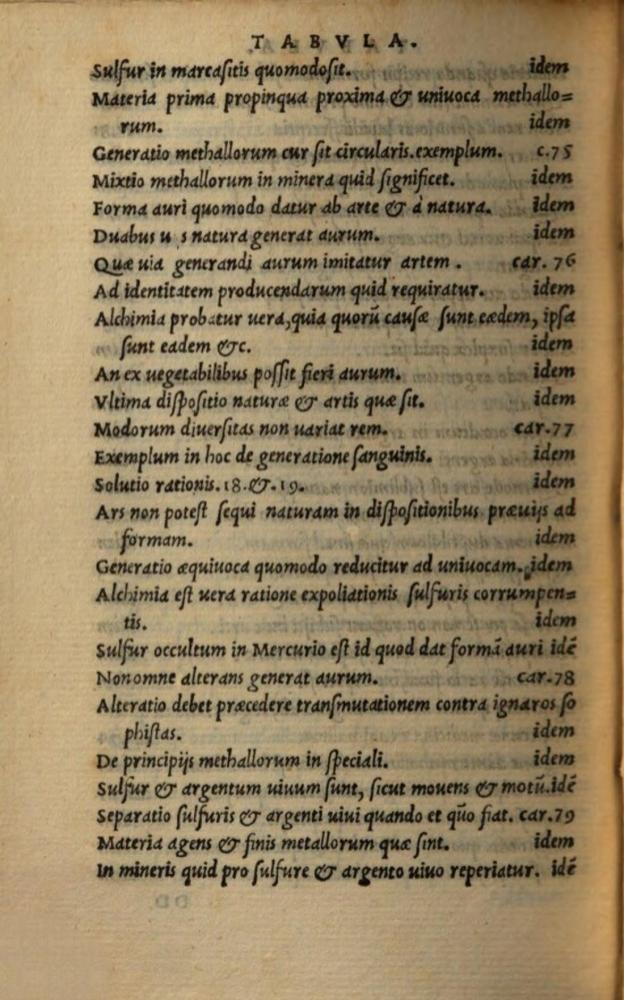 TABVLA.
Sulfur in marcasitis quomodo sit. idem
Materia prima propinqua proxima & uniuoca methallo=
rum. idem
Generatio methallorum cur sit circularis. exemplum. c.75
Mixtio methallorum in minera quid significet. idem
Forma auri quomodo datur ab arte & à natura. idem
Duabus u s natura generat aurum. idem
Quæ uia generandi aurum imitatur artem. car. 76
Ad identitatem producendarum quid requiratur. idem
Alchimia probatur uera, quia quorū causæ sunt eædem, ipsa
sunt eadem &c. idem
An ex uegetabilibus possit fieri aurum. idem
Vltima dispositio naturæ & artis quæ sit. idem
Modorum diuersitas non uariat rem. car.77
Exemplum in hoc de generatione sanguinis. idem
Solutio rationis. 18. &. 19. idem
Ars non potest sequi naturam in dispositionibus præuijs ad
formam. idem
Generatio æquiuoca quomodo reducitur ad uniuocam. idem
Alchimia est uera ratione expoliationis sulfuris corrumpen=
tis. idem
Sulfur occultum in Mercurio est id quod dat formā auri idē
Non omne alterans generat aurum. car.78
Alteratio debet præcedere transmutationem contra ignaros so
phistas. idem
De principijs methallorum in speciali. idem
Sulfur & argentum uiuum sunt, sicut mouens & motū. idē
Separatio sulfuris & argenti uiui quando et quō fiat. car.79
Materia agens & finis metallorum quæ sint. idem
In mineris quid pro sulfure & argento uiuo reperiatur. idē